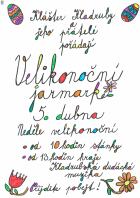 Klášter Kladruby
a
jeho přátelé
pořádají
Velikonoční
jarmark
5. dubna
Neděle velikonoční
od 10 hodin stánky
od 13 hodin hraje
Kladrubská dudácká
muzika
Přijďte pobejt!